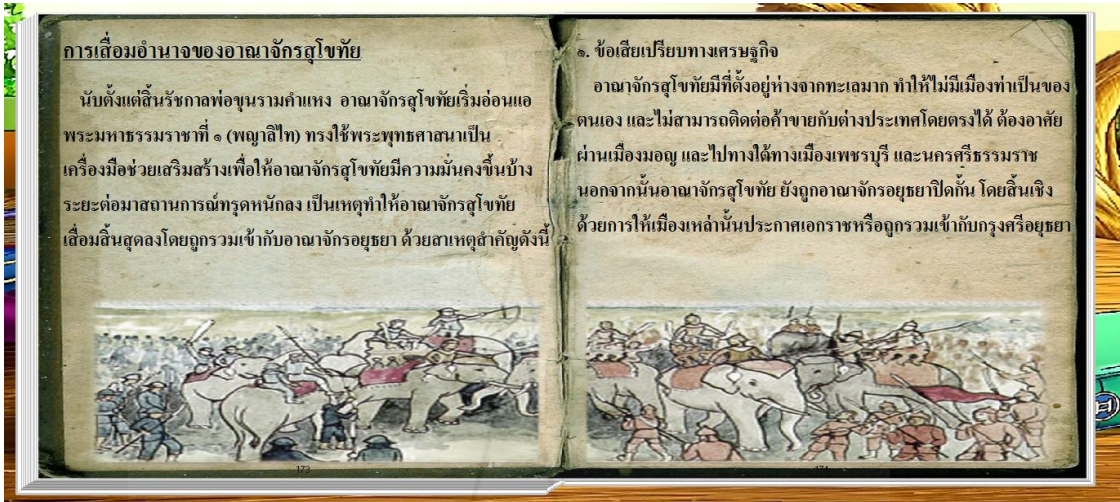 การเสื่อมอำนาจของอาณาจักรสุโขทัย
นับตั้งแต่สิ้นรัชกาลพ่อขุนรามคำแหง อาณาจักรสุโขทัยเริ่มอ่อนแอ
พระมหาธรรมราชาที่ ๑ (พญาลิไท) ทรงใช้พระพุทธศาสนาเป็น
เครื่องมือช่วยเสริมสร้างเพื่อให้อาณาจักรสุโขทัยมีความมั่นคงขึ้นบ้าง
ระยะต่อมาสถานการณ์ทรุดหนักลง เป็นเหตุทำให้อาณาจักรสุโขทัย
เสื่อมสิ้นสุดลงโดยถูกรวมเข้ากับอาณาจักรอยุธยา ด้วยสาเหตุสำคัญดังนี้
173
๑. ข้อเสียเปรียบทางเศรษฐกิจ
อาณาจักรสุโขทัยมีที่ตั้งอยู่ห่างจากทะเลมาก ทำให้ไม่มีเมืองท่าเป็นของ
ตนเอง และไม่สามารถติดต่อค้าขายกับต่างประเทศโดยตรงได้ ต้องอาศัย
ผ่านเมืองมอญ และไปทางใต้ทางเมืองเพชรบุรี และนครศรีธรรมราช
นอกจากนั้นอาณาจักรสุโขทัย ยังถูกอาณาจักรอยุธยาปิดกั้น โดยสิ้นเชิง
ด้วยการให้เมืองเหล่านั้นประกาศเอกราชหรือถูกรวมเข้ากับกรุงศรีอยุธยา
174